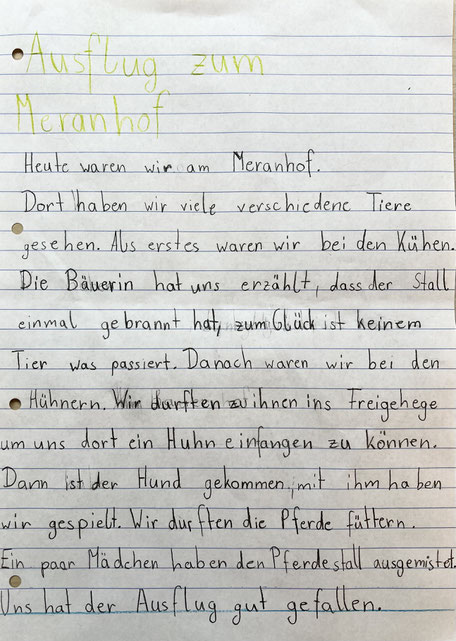 Ausflug zum
Meranhof
Heute waren wir am Meranhof.
Dort haben wir viele verschiedene Tiere
gesehen. Als erstes waren wir bei den Kühen.
Die Bäuerin hat uns erzählt, dass der Stall
einmal gebrannt hat, zum Glück ist keinem
Tier was passiert. Danach waren wir bei den
Hühnern. Wir durften zu ihnen ins Freigehege
um uns dort ein Huhn einfangen zu können.
Dann ist der Hund gekommen, mit ihm haben
wir gespielt. Wir durften die Pferde füttern.
Ein paar Mädchen haben den Pferdestall ausgemistet.
Uns hat der Ausflug gut gefallen.